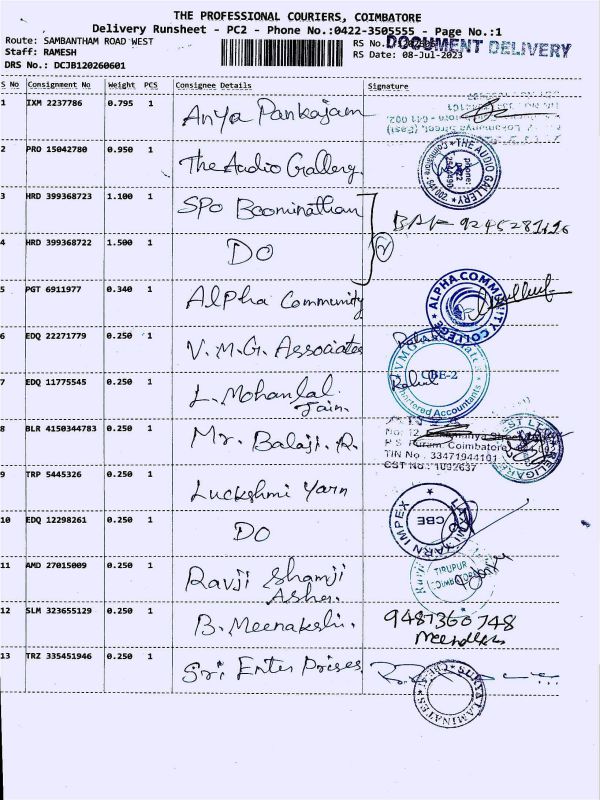 THE PROFESSIONAL COURIERS, COIMBATORE
Delivery Runsheet - PC2 - Phone No.:0422-3505555 - Page No.:1
Route: SAMBANTHAM ROAD WEST
Staff: RAMESH
DRS No.: DCJB120260601
RS No.
RS Date: 08-Jul-2023
DOCUMENT DELIVERY
S No Consignment No Weight PCS Consignee Details Signature
1 IXM 2237786 0.795 1 Anya Pankajam
2 PRO 15042780 0.950 1 The Audio Gallery.
THE AUDIO GALLERY
3 HRD 399368723 1.100 1 SPO Boominathan
4 HRD 399368722 1.500 1 DO
2
5 PGT 6911977 0.340 1 Alpha Community
ALPHA COMMUNITY COLLEGE
6 EDQ 22271779 0.250 1 V.M.G. Associates
CBE-2
Chartered Accountants
7 EDQ 11775545 0.250 1 L. Mohanlal Jain.
Rahul
8 BLR 4150344783 0.250 1 Mr. Balaji. R.
No: 12,
R.S. Puram, Coimbatore
TIN No : 33471944101
CST No.: 1092637
RELIGARE
9 TRP 5445326 0.250 1 Luckshmi Yarn
LAXMI YARN IMPEX
CBE
10 EDQ 12298261 0.250 1 DO
11 AMD 27015009 0.250 1 Ravji Shamji Asher.
TIRUPUR
COIMBATORE
12 SLM 323655129 0.250 1 B. Meenakshi.
9487360748
13 TRZ 335451946 0.250 1 Sri Enter Prises
SURYA LAMINATES